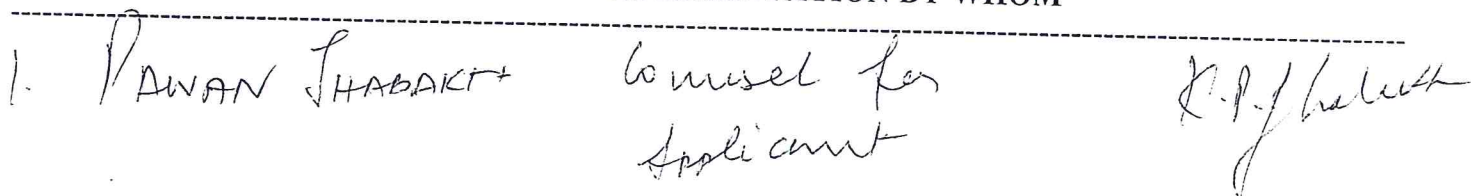 BY WHOM
1. PAWAN JHABAKH Counsel for
Applicant